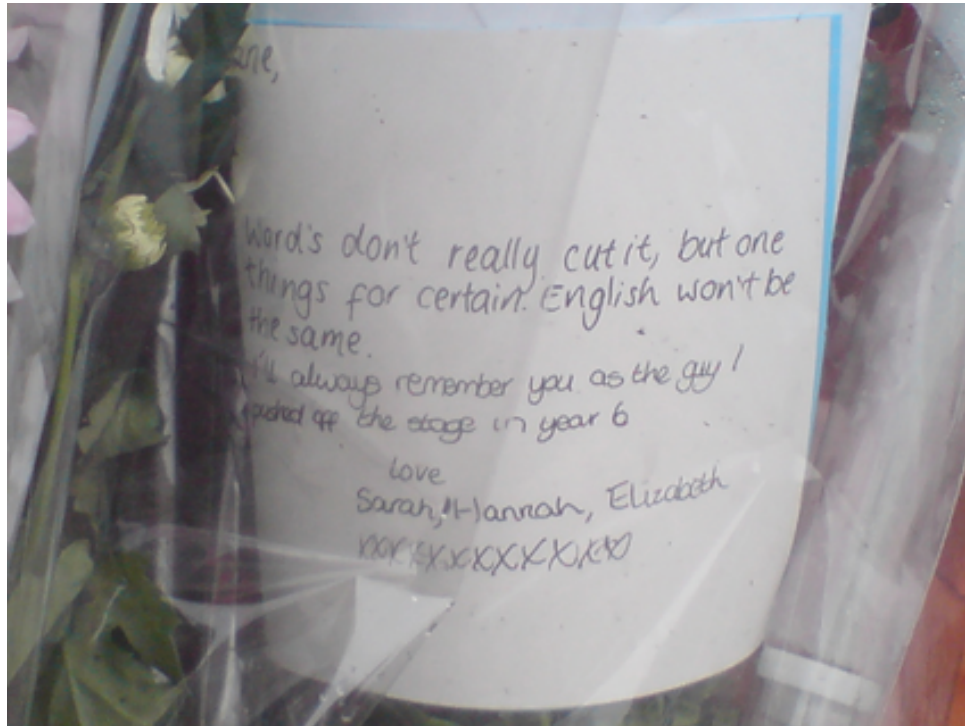 ane,
Word's don't really cut it, but one
things for certain. English won't be
the same.
I'll always remember you as the guy I
pushed off the stage in year 6
Love
Sarah, Hannah, Elizabeth